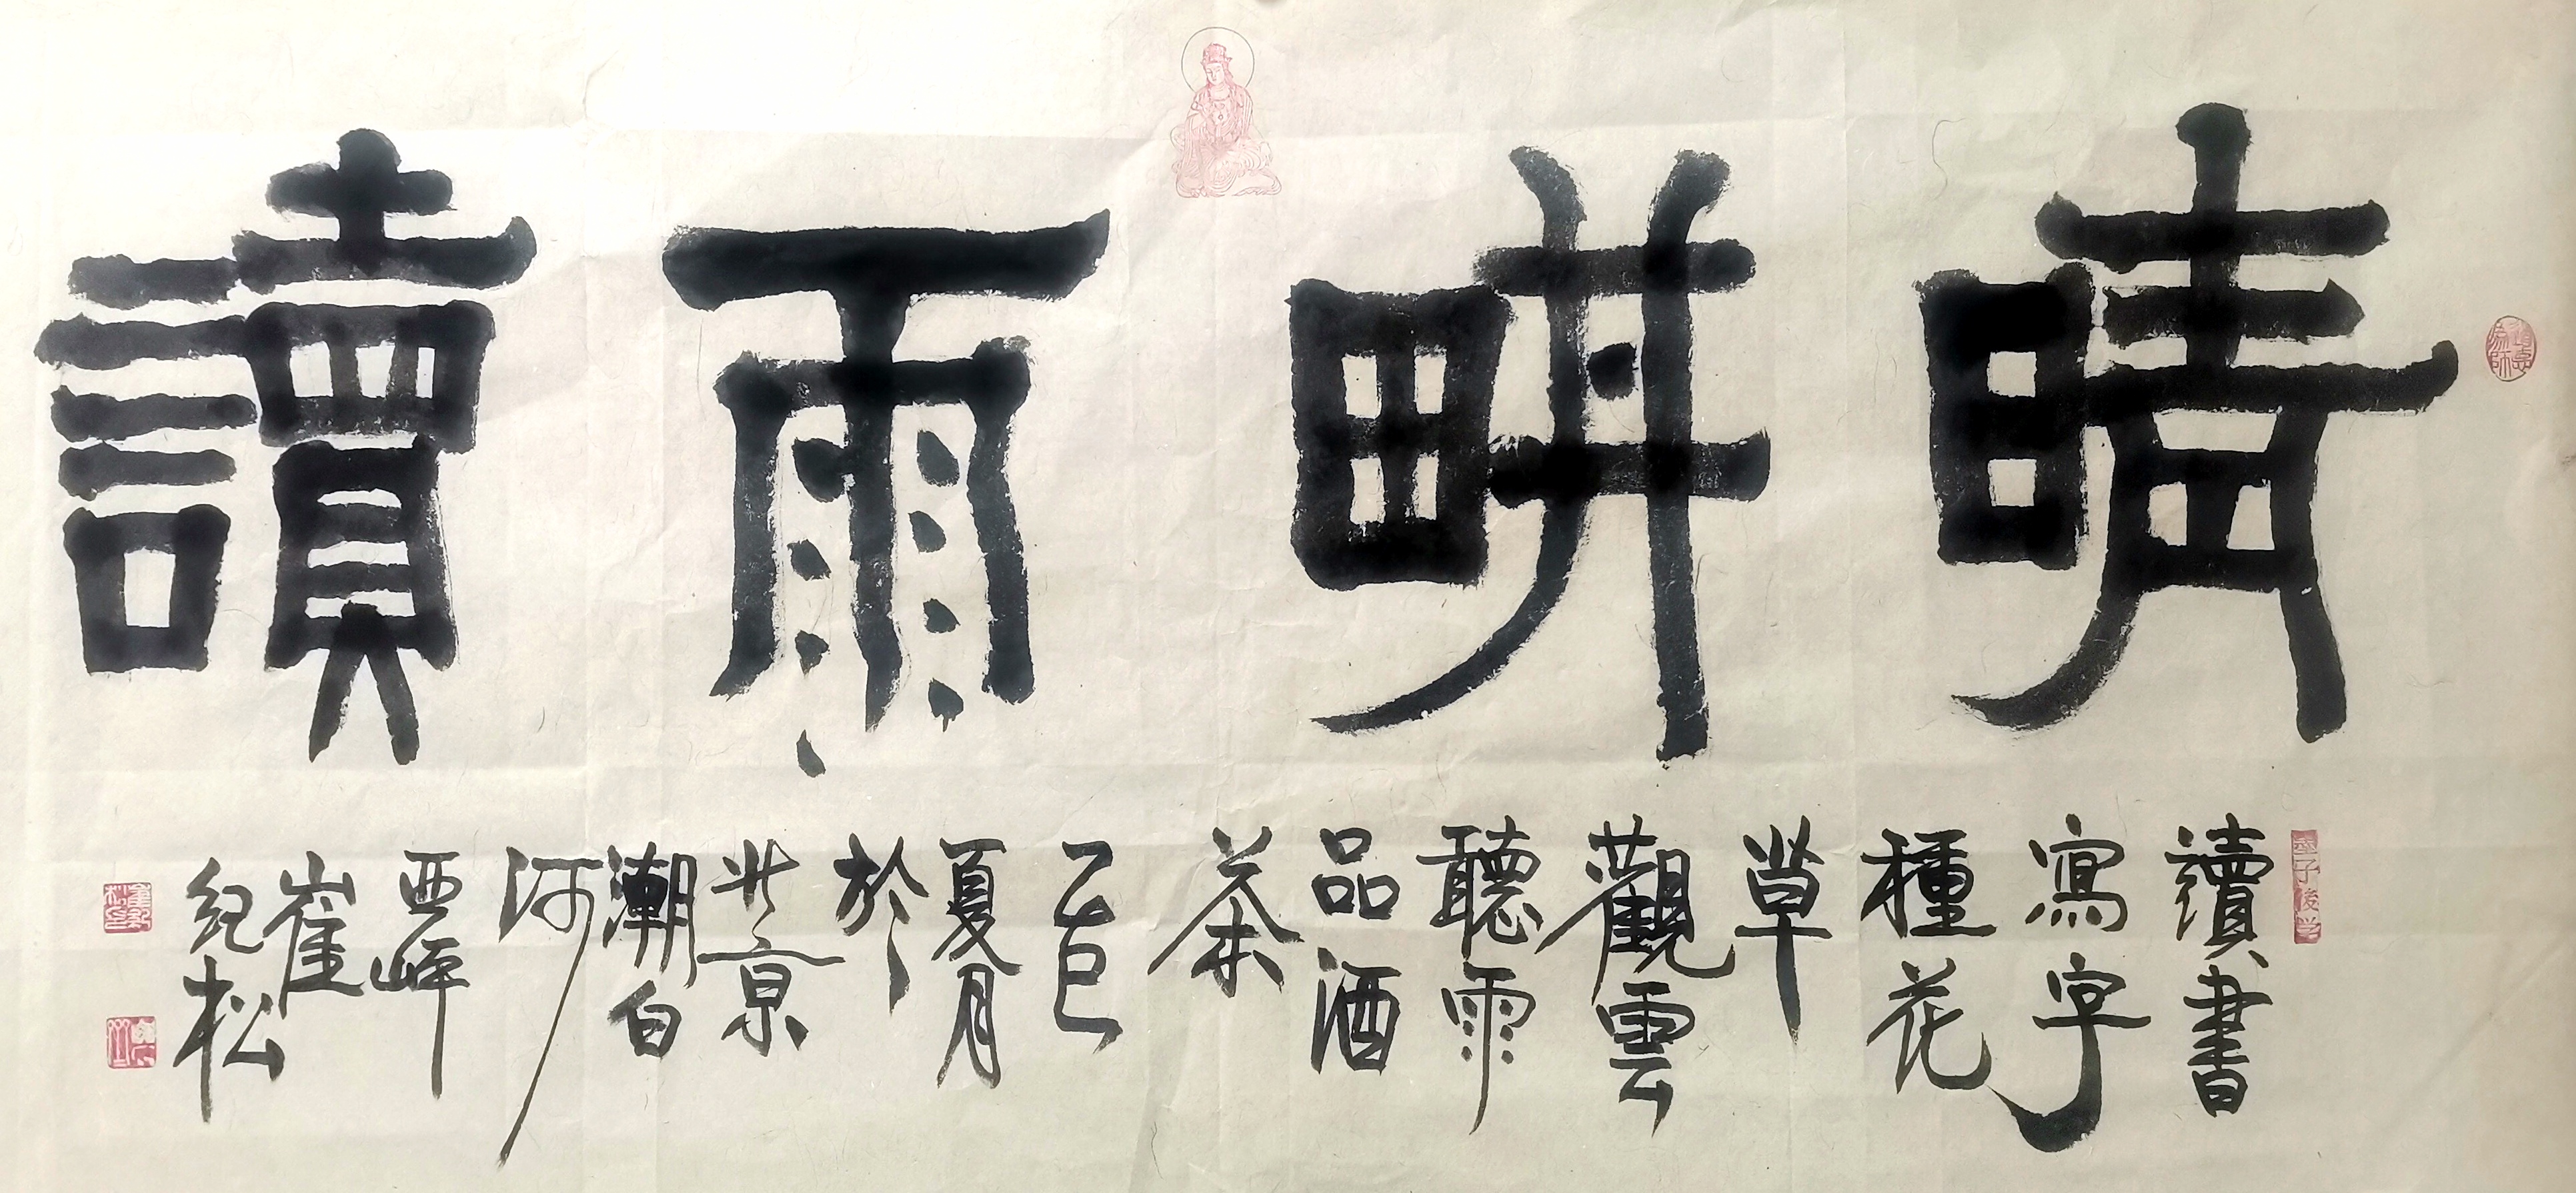 晴畊雨讀
讀書
寫字
種花
草
觀雲
聽雨
品酒
茶
乙巳
夏月
於
北京
潮白
河
西岸
崔
紀松